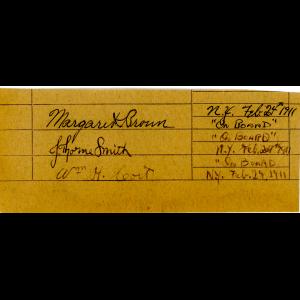 N.Y. Feb. 24th 1911
Margaret Brown "On Board"
"On Board"
J Thorne Smith N.Y. Feb. 24th 1911
"On Board
Wm H. Hoyt N.Y. Feb. 24, 1911